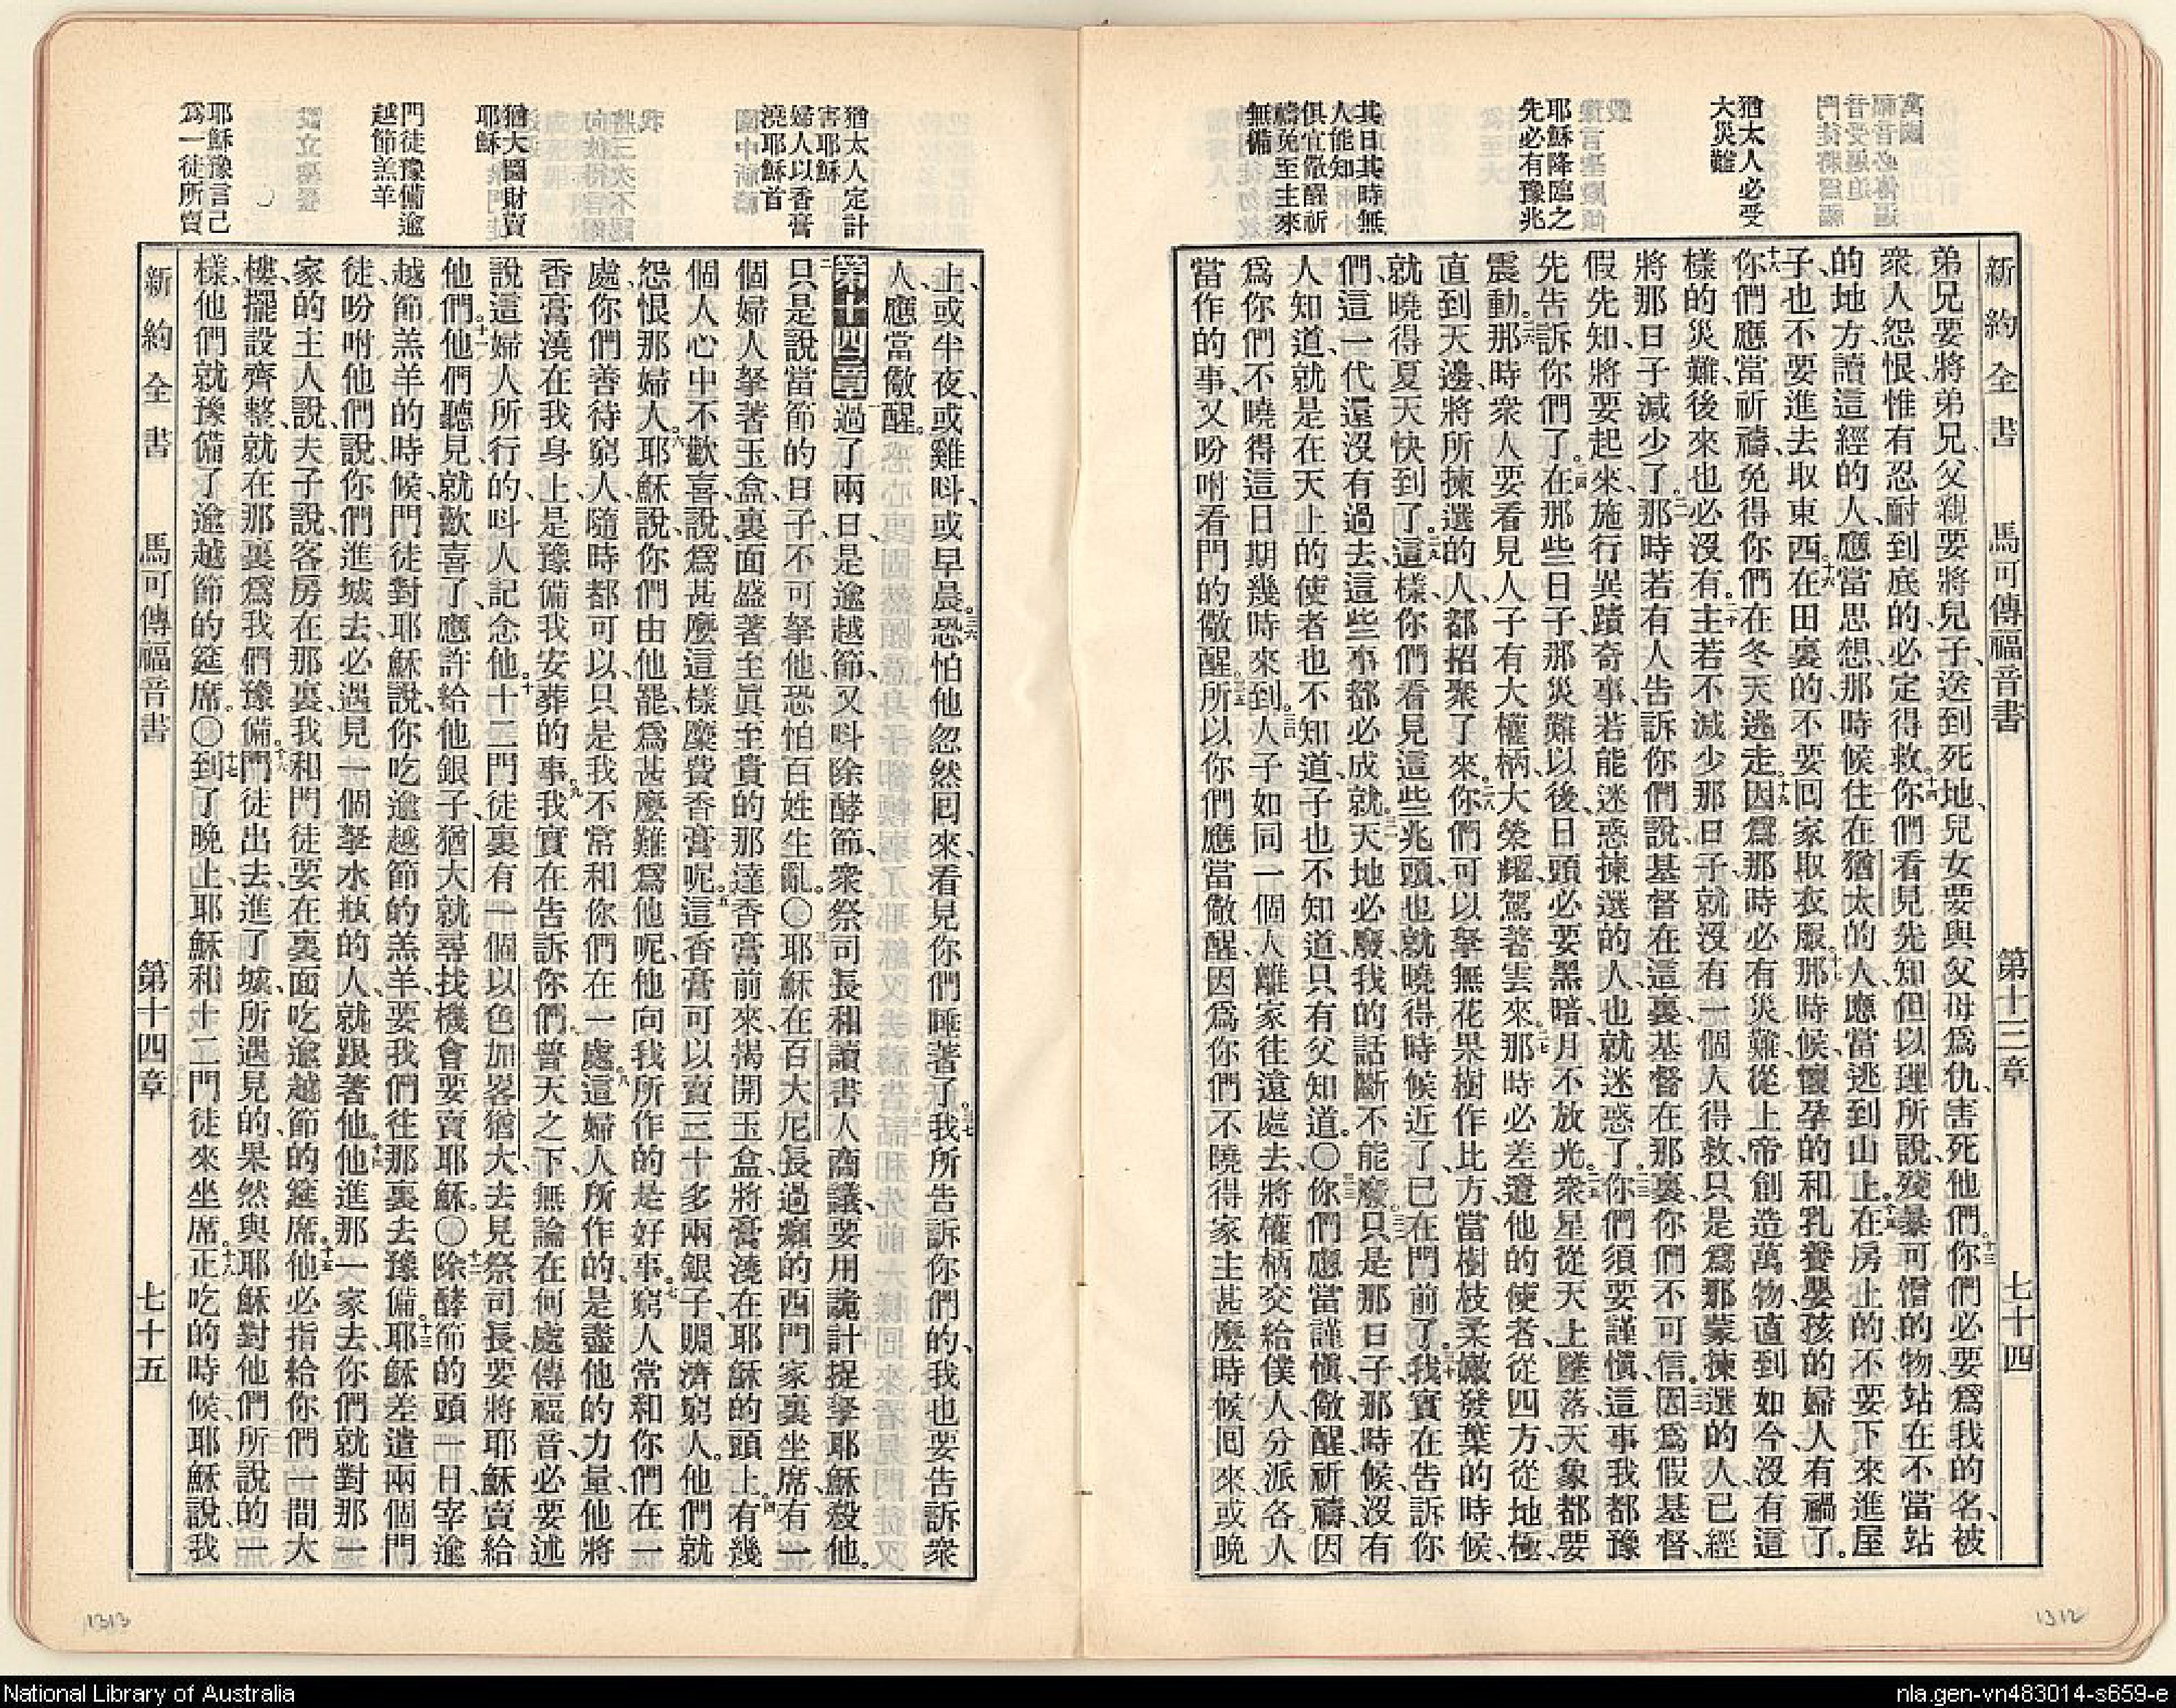 新約全書 馬可傳福音書 第十三章 七十四
猶太人必受
大災難
耶穌降臨之
先必有豫兆
其日其時無
人能知
俱宜儆醒祈
禱免至主來
無備
弟兄要將弟兄、父親要將兒子、送到死地、兒女要與父母爲仇、害死他們。十三你們必要爲我的名、被
衆人怨恨、惟有忍耐到底的、必定得救。十四你們看見先知但以理所說、殘暴可憎的物、站在不當站
的地方、讀這經的人、應當思想、那時候住在猶太的人、應當逃到山上。十五在房上的、不要下來進屋
子、也不要進去取東西。十六在田裏的、不要回家取衣服。十七那時候、懷孕的和乳養嬰孩的婦人有禍了。
十八你們應當祈禱、免得你們在冬天逃走。十九因爲那時必有災難、從上帝創造萬物、直到如今、沒有這
樣的災難、後來也必沒有。二十主若不減少那日子、就沒有一個人得救、只是爲那蒙揀選的人、已經
將那日子減少了。二一那時若有人告訴你們說、基督在這裏、基督在那裏、你們不可信。二二因爲假基督、
假先知、將要起來、施行異蹟奇事、若能迷惑揀選的人、也就迷惑了。二三你們須要謹愼、這事我都豫
先告訴你們了。二四在那些日子、那災難以後、日頭必要黑暗、月不放光。二五衆星從天上墜落、天象都要
震動。二六那時衆人要看見人子有大權柄、大榮耀、駕著雲來。二七那時必差遣他的使者、從四方、從地極、
直到天邊、將所揀選的人、都招聚了來。二八你們可以拏無花果樹作比方、當樹枝柔嫩發葉的時候、
就曉得夏天快到了。二九這樣、你們看見這些兆頭、也就曉得時候近了、已在門前了。三十我實在告訴你
們、這一代還沒有過去、這些事都必成就。三一天地必廢、我的話斷不能廢。三二只是那日子、那時候、沒有
人知道、就是在天上的使者也不知道、子也不知道、只有父知道。〇三三你們應當謹愼、儆醒、祈禱、因
爲你們不曉得這日期幾時來到。三四人子如同一個人離家往遠處去、將權柄交給僕人、分派各人
當作的事、又吩咐看門的儆醒。三五所以你們應當儆醒、因爲你們不曉得家主甚麼時候回來、或晚
猶太人定計
害耶穌
婦人以香膏
澆耶穌首
猶大圖財賣
耶穌
門徒豫備逾
越節羔羊
耶穌豫言己
爲一徒所賣
上、或半夜、或雞呌、或早晨。三六恐怕他忽然回來、看見你們睡著了。三七我所告訴你們的、我也要告訴衆
人、應當儆醒。
第十四章 一過了兩日、是逾越節、又呌除酵節、衆祭司長和讀書人商議、要用詭計捉拏耶穌殺他。
二只是說、當節的日子、不可拏他、恐怕百姓生亂。〇三耶穌在百大尼、長過癩的西門家裏坐席、有一
個婦人拏著玉盒、裏面盛著至眞至貴的那達香膏前來、揭開玉盒、將膏澆在耶穌的頭上。四有幾
個人心中不歡喜、說、爲甚麼這樣糜費香膏呢。五這香膏可以賣三十多兩銀子、賙濟窮人。他們就
怨恨那婦人。六耶穌說、你們由他罷、爲甚麼難爲他呢、他向我所作的是好事。七窮人常和你們在一
處、你們善待窮人、隨時都可以、只是我不常和你們在一處。八這婦人所作的、是盡他的力量、他將
香膏澆在我身上、是豫備我安葬的事。九我實在告訴你們、普天之下、無論在何處傳福音、必要述
說這婦人所行的、呌人記念他。十十二門徒裏有一個以色加畧猶大、去見祭司長、要將耶穌賣給
他們。十一他們聽見就歡喜了、應許給他銀子、猶大就尋找機會要賣耶穌。〇十二除酵節的頭一日、宰逾
越節羔羊的時候、門徒對耶穌說、你吃逾越節的羔羊、要我們往那裏去豫備。十三耶穌差遣兩個門
徒、吩咐他們說、你們進城去、必遇見一個拏水瓶的人、就跟著他。十四他進那一家去、你們就對那一
家的主人說、夫子說、客房在那裏、我和門徒要在裏面吃逾越節的筵席。十五他必指給你們一間大
樓、擺設齊整、就在那裏爲我們豫備。十六門徒出去、進了城、所遇見的、果然與耶穌對他們所說的一
樣、他們就豫備了逾越節的筵席。〇十七到了晚上、耶穌和十二門徒來坐席。十八正吃的時候、耶穌說、我
新約全書 馬可傳福音書 第十四章 七十五
1313
1312
National Library of Australia
nla.gen-vn483014-s659-e